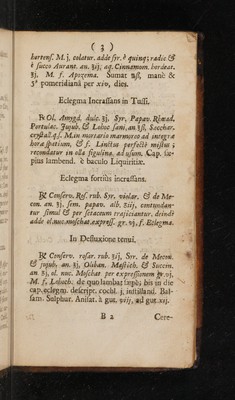 ( 3 )
hartens. M. j, colatur. adde syr. è quinq; radic &
è succo Aurant. an. ℥ij; aq. Cinnamom. hordeat.
℥j. M. f. Apozema. Sumat ℥ß, manè &
5ª pomeridianâ per xiv, dies.
Eclegma Incrassans in Tussi.
℞ Ol. Amygd. dulc. ℥j. Syr. Papav. Rhœad.
Portulac. Jujub. & Lohoc sani, an ℥ß, Sacchar.
crystall. q.s. M. in mortario marmoreo ad integræ
horæ spatium, & f. Linctus perfectè mistus;
recondatur in olla figulina, ad usum. Cap. sæ-
pius lambend. è baculo Liquiritiæ.
Eclegma fortiùs incrassant.
℞ Conserv. Ros. rub. Syr. violar. & de Me-
con. an. ℥j. sem. papav. alb. ʒiij, contundan-
tur simul & per setaceum trajiciantur, deindè
adde ol. nuc. moschat. express. gr. vj, f. Eclegma.
In Defluxione tenui.
℞ Conserv. rosar. rub. ʒij, Syr. de Mecon.
& jujub. an. ℥j, Oliban. Mastich. & Succin.
an ʒj, ol. nuc. Moschat. per expressionem gr. vj.
M. f. Lohoch. de quo lambat sæpè; bis in die
cap. eclegm. descript. cochl. j, instilland. Bal-
sam. Sulphur. Anisat. à gut. viij, ad gut. xij.
B 2 Cere-